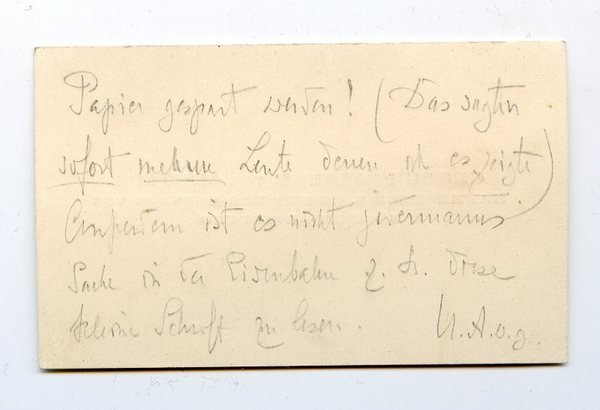 Papier gespart werden! (Das sagten
sofort mehrere Leute denen ich es zeigte)
Ausserdem ist es nicht jedermanns
Sache in der Eisenbahn z. B. diese
kleine Schrift zu lesen. U.A.w.g.